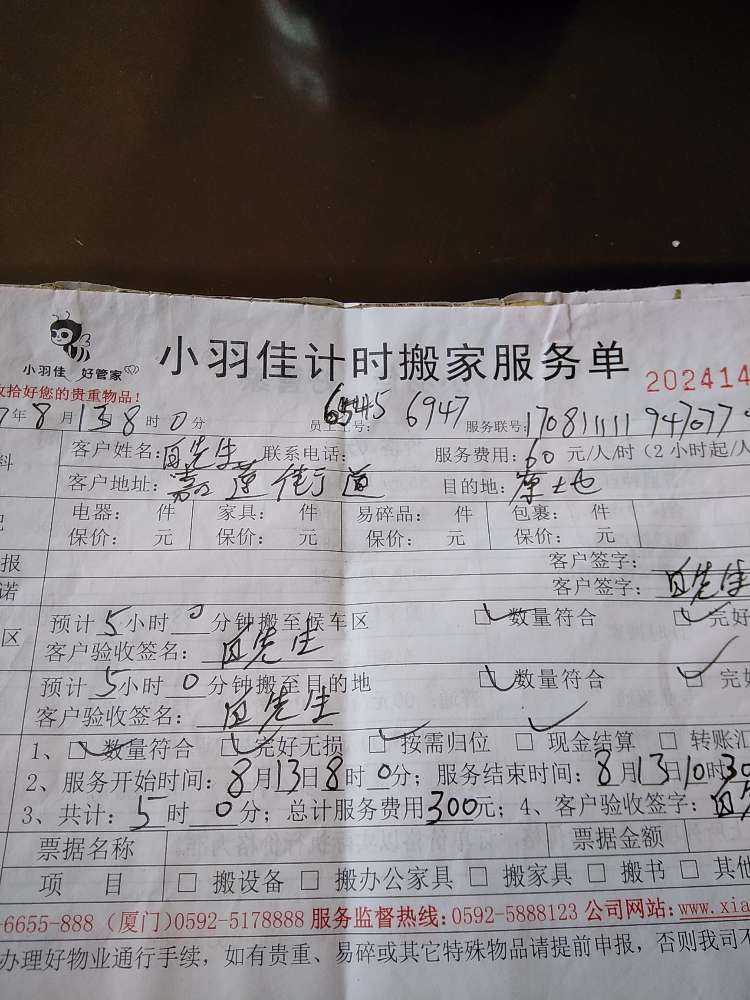 小羽佳 好管家
小羽佳计时搬家服务单
收拾好您的贵重物品！
202414
7年8月13日8时0分 6947 服务联号：
客户姓名：白先生 联系电话： 服务费用：60元/人/时（2小时起/人
客户地址：嘉莲街道 目的地：原土地
电器： 件 家具： 件 易碎品： 件 包裹： 件
保价： 元 保价： 元 保价： 元 保价： 元
报 客户签字：
诺 客户签字：白先生
预计5小时0分钟搬至候车区 □数量符合 □完好
区 客户验收签名：白先生
预计5小时0分钟搬至目的地 □数量符合 □完好
客户验收签名：白先生
1、□数量符合 □完好无损 □按需归位 □现金结算 □转账汇
2、服务开始时间：8月13日8时0分；服务结束时间：8月13日10时30
3、共计：5时0分；总计服务费用300元；4、客户验收签字：白
票据名称 票据金额
项 目 □搬设备 □搬办公家具 □搬家具 □搬书 □其他
-6655-888 (厦门)0592-5178888 服务监督热线:0592-5888123 公司网站:www.xia
办理好物业通行手续，如有贵重、易碎或其它特殊物品请提前申报，否则我司不